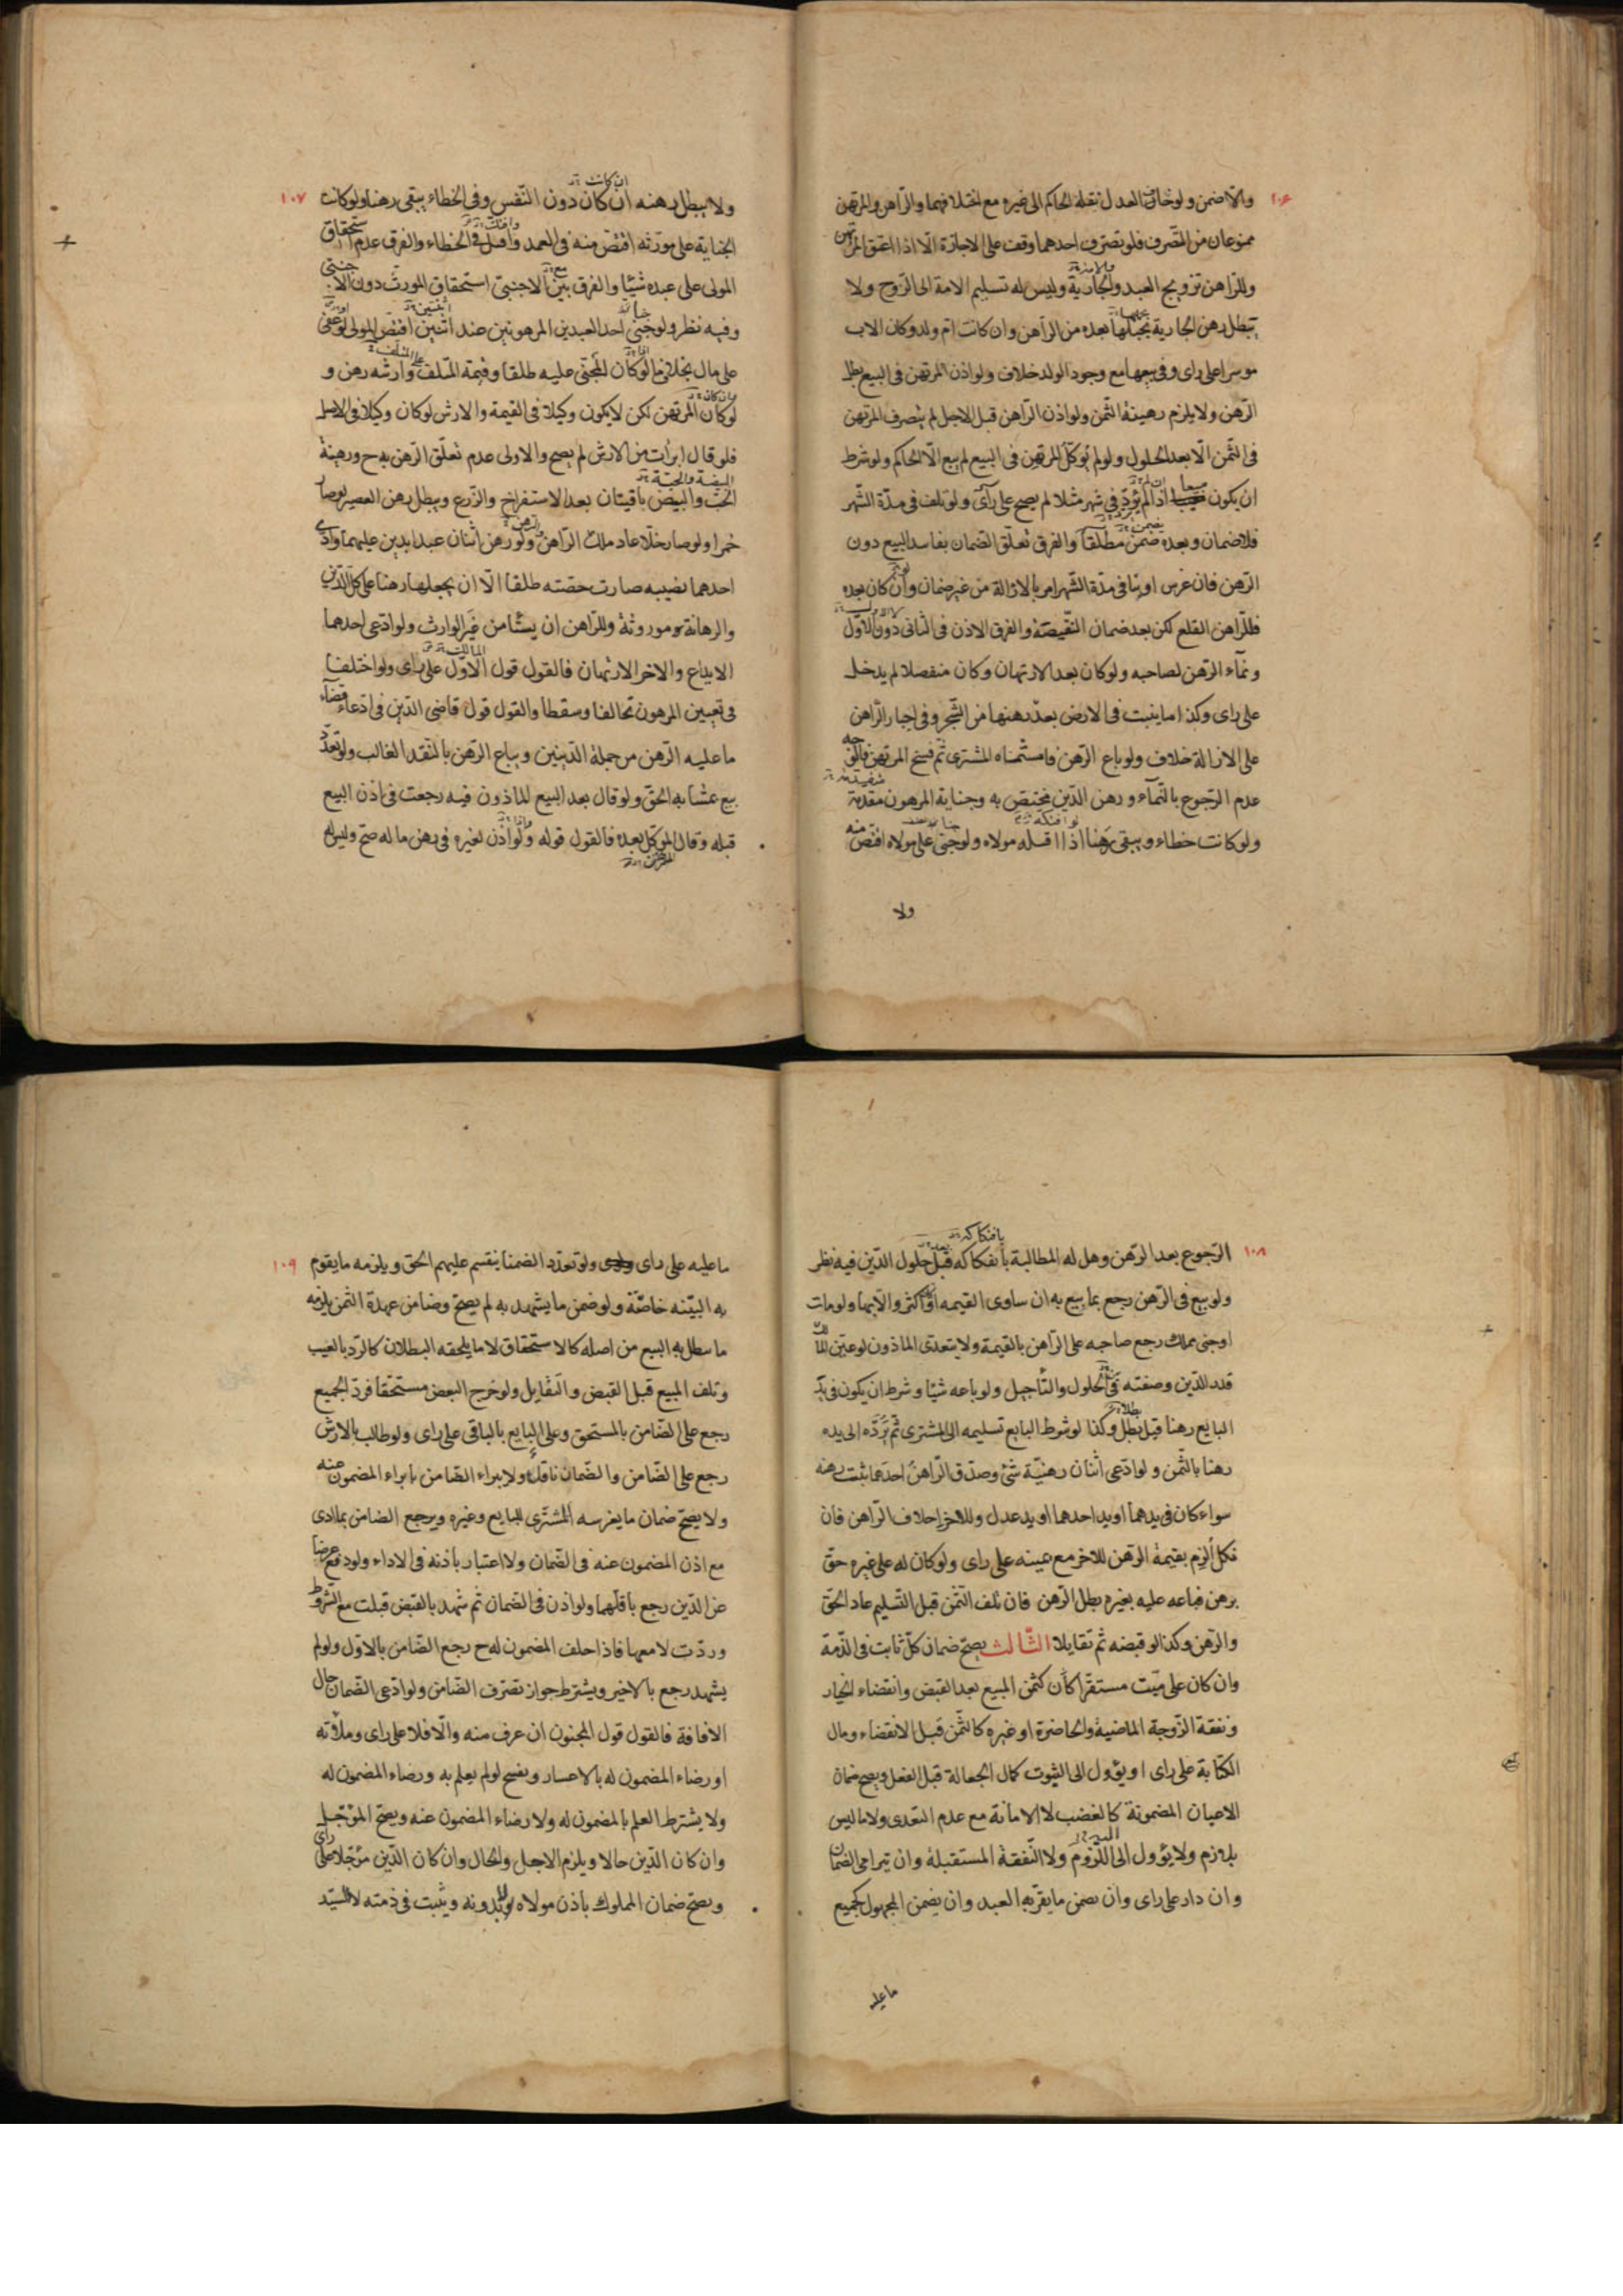 ١٠٦
والّا ضمن ولو خاف العدل نقله الحاكم الى غيره مع اختلافهما والرّاهن والمرتهن
ممنوعان من التصرف فلو تصرّف احدهما وقف على الاجازة الّا اذا اعتق المرتهن
وللرّاهن تزويج العبد والجارية وليس له تسليم الامة الى الزوج ولا
يبطل رهن الجارية بحبلها بعده من الراهن وان كانت ام ولد وكان الاب
موسرا على راى وفى بيعها مع وجود الولد خلاف ولو اذن المرتهن فى البيع بطل
الرّهن ولا يلزم رهينة الثمن ولو اذن الرّاهن قبل الاجل لم يتصرف المرتهن
فى الثمن الّا بعد الحلول ولو لم يوكّل المرتهن فى البيع لم يبع الّا الحاكم ولو شرط
ان يكون مبيعا اذا لم يؤدّ فى شهر مثلا لم يصح على رأى ولو تلف فى مدّة الشهر
فلا ضمان وبعده ضمن مطلقا والفرق تعلّق الضمان بفاسد البيع دون
الرّهن فان غرس او بنا فى مدّة الشّهر امر بالازالة من غير ضمان وان كان بعده
فللرّاهن القلع لكن بعد ضمان النقيصة والفرق الاذن فى الثانى دون الاوّل
ونمآء الرّهن لصاحبه ولو كان بعد الارتهان وكان منفصلا لم يدخل
على راى وكذا ما ينبت فى الارض بعد رهنها من الشّجر وفى اجبار الرّاهن
على الازالة خلاف ولو باع الرّهن فاستثمناه المشترى ثم فسخ المرتهن فالوجه
عدم الرّجوع بالنّمآء ورهن الدّين يختص به وجناية المرهون مقدمة
ولو كانت خطاء ويبقى رهنا اذا افتكه مولاه ولو جنى على مولاه اقتص منه
ولا
١٠٧
ولا يبطل رهنه ان كان دون النّفس وفى الخطاء يبقى رهنا ولو كانت
الجناية على مورّثه اقتصّ منه فى العمد وافتك فى الخطاء والفرق عدم استحقاق
المولى على عبده شيئا والفرق بين الاجنبىّ استحقاق المورث دون الاجنبى
وفيه نظر ولو جنى احد العبدين المرهونين عند اثنين اقتصّ المولى او عفى
على مال بخلاف ما لو كان المجنى عليه طلقا وقيمة المتلف وارشه رهن و
لو كان المرتهن لكن لا يكون وكيلا فى القيمة والارش لو كان وكيلا فى الاصل
فلو قال ابرأت من الارش لم يصح والاولى عدم تعلّق الرّهن به ح ورهينة
الحبّ والبيض باقيتان بعد الاستفراخ والزّرع ويبطل رهن العصير لو صار
خمرا ولو صار خلّا عاد ملك الرّاهن ولو رهن اثنان عبدا بدين عليهما وادّى
احدهما نصيبه صارت حصّته طلقا الّا ان يجعلها رهنا على كل الدّين
والرهانة موروثة وللرّاهن ان يستأمن غير الوارث ولو ادّعى احدهما
الايداع والاخر الارتهان فالقول قول الاوّل على راى ولو اختلفا
فى تعيين المرهون تحالفا وسقطا والقول قول قاضى الدّين فى ادعاء قضآء
ما عليه الرّهن من جملة الدّينين ويباع الرّهن بالنّقد الغالب ولو تعدّد
بيع بمشابه الحقّ ولو قال بعد البيع الماذون فيه رجعت فى اذن البيع
قبله وقال الموكل بعده فالقول قوله ولو اذن لغيره فى رهن ماله صحّ وليس له
١٠٨
الرّجوع بعد الرّهن وهل له المطالبة بانفكاكه قبل حلول الدّين فيه نظر
ولو بيع فى الرّهن رجع بما بيع به ان ساوى القيمه او اكثر والّا بها ولو مات
او جنى مملك رجع صاحبه على الرّاهن بالقيمة ولا يتعدى الماذون لو عيّن المالك
قدر الدّين وصفته فى الحلول والتأجيل ولو باعه شيئا وشرط ان يكون فى يد
البايع رهنا قبل بطل وكذا لو شرط البايع تسليمه الى المشترى ثمّ يردّه الى يده
رهنا بالثّمن ولو ادّعى اثنان رهنيّة شئ وصدّق الرّاهن احدهما ثبت رهنه
سواء كان فى يدهما او يد احدهما او يد عدل وللاخر احلاف الرّاهن فان
نكل الزم بقيمة الرّهن للاخر مع عينه على راى ولو كان له على غيره حق
برهن فباعه عليه بغيره بطل الرّهن فان تلف الثمن قبل التّسليم عاد الحق
والرّهن وكذا لو قبضه ثم تقايلا الثّالث يصحّ ضمان كلّ ثابت فى الذّمة
وان كان على ميّت مستقرّا كان كثمن المبيع بعد القبض وانقضاء الخيار
ونفقة الزّوجة الماضية والحاضرة او غيره كالثّمن قبل الانقضاء ومال
الكتابة على راى او يؤول الى الثبوت كمال الجعالة قبل الفعل ويصح ضمان
الاعيان المضمونة كالغصب لا الامانة مع عدم التعدى ولا ما ليس
بلازم ولا يؤول الى اللّزوم ولا النّفقة المستقبلة وان يترامى الضمان
وان دار على راى وان يضمن ما يقرّ به العبد وان يضمن المجهول كجميع
ما عليه
١٠٩
ما عليه على راى ولو تعدّد الضمنا ينقسم عليهم الحق ويلزمه ما يقوم
به البيّنه خاصّة ولو ضمن ما يشهد به لم يصحّ وضامن عهدة الثمن يلزمه
ما بطل به البيع من اصله كالاستحقاق لا ما يلحقه البطلان كالرّد بالعيب
وتلف المبيع قبل القبض والتّقايل ولو خرج البعض مستحقّا فردّ الجميع
رجع على الضّامن بالمستحق وعلى البايع بالباقى على راى ولو طالب بالارش
رجع على الضّامن والضّمان ناقل ولا يبراء الضّامن بابراء المضمون عنه
ولا يصحّ ضمان ما يغرسه المشترى للبايع وغيره ويرجع الضامن بما ادى
مع اذن المضمون عنه فى الضّمان ولا اعتبار باذنه فى الاداء ولو دفع عرضا
عن الدّين رجع باقلّهما ولو اذن فى الضمان ثم شهد بالقبض قبلت مع الشروط
وردّت لا معها فاذا حلف المضمون له ح رجع الضّامن بالاوّل ولو لم
يشهد رجع بالاخير ويشترط جواز تصرّف الضّامن ولو ادّعى الضّمان حال
الافاقة فالقول قول المجنون ان عرف منه والّا فلا على راى وملأته
او رضاء المضمون له بالاعسار ويفسخ لو لم يعلم به ورضاء المضمون له
ولا يشترط العلم بالمضمون له ولا رضاء المضمون عنه ويصحّ المؤجّل
وان كان الدّين حالا ويلزم الاجل والحال وان كان الدّين مؤجّلا على راى
ويصحّ ضمان المملوك باذن مولاه وبدونه ويثبت فى ذمته لا السيّد